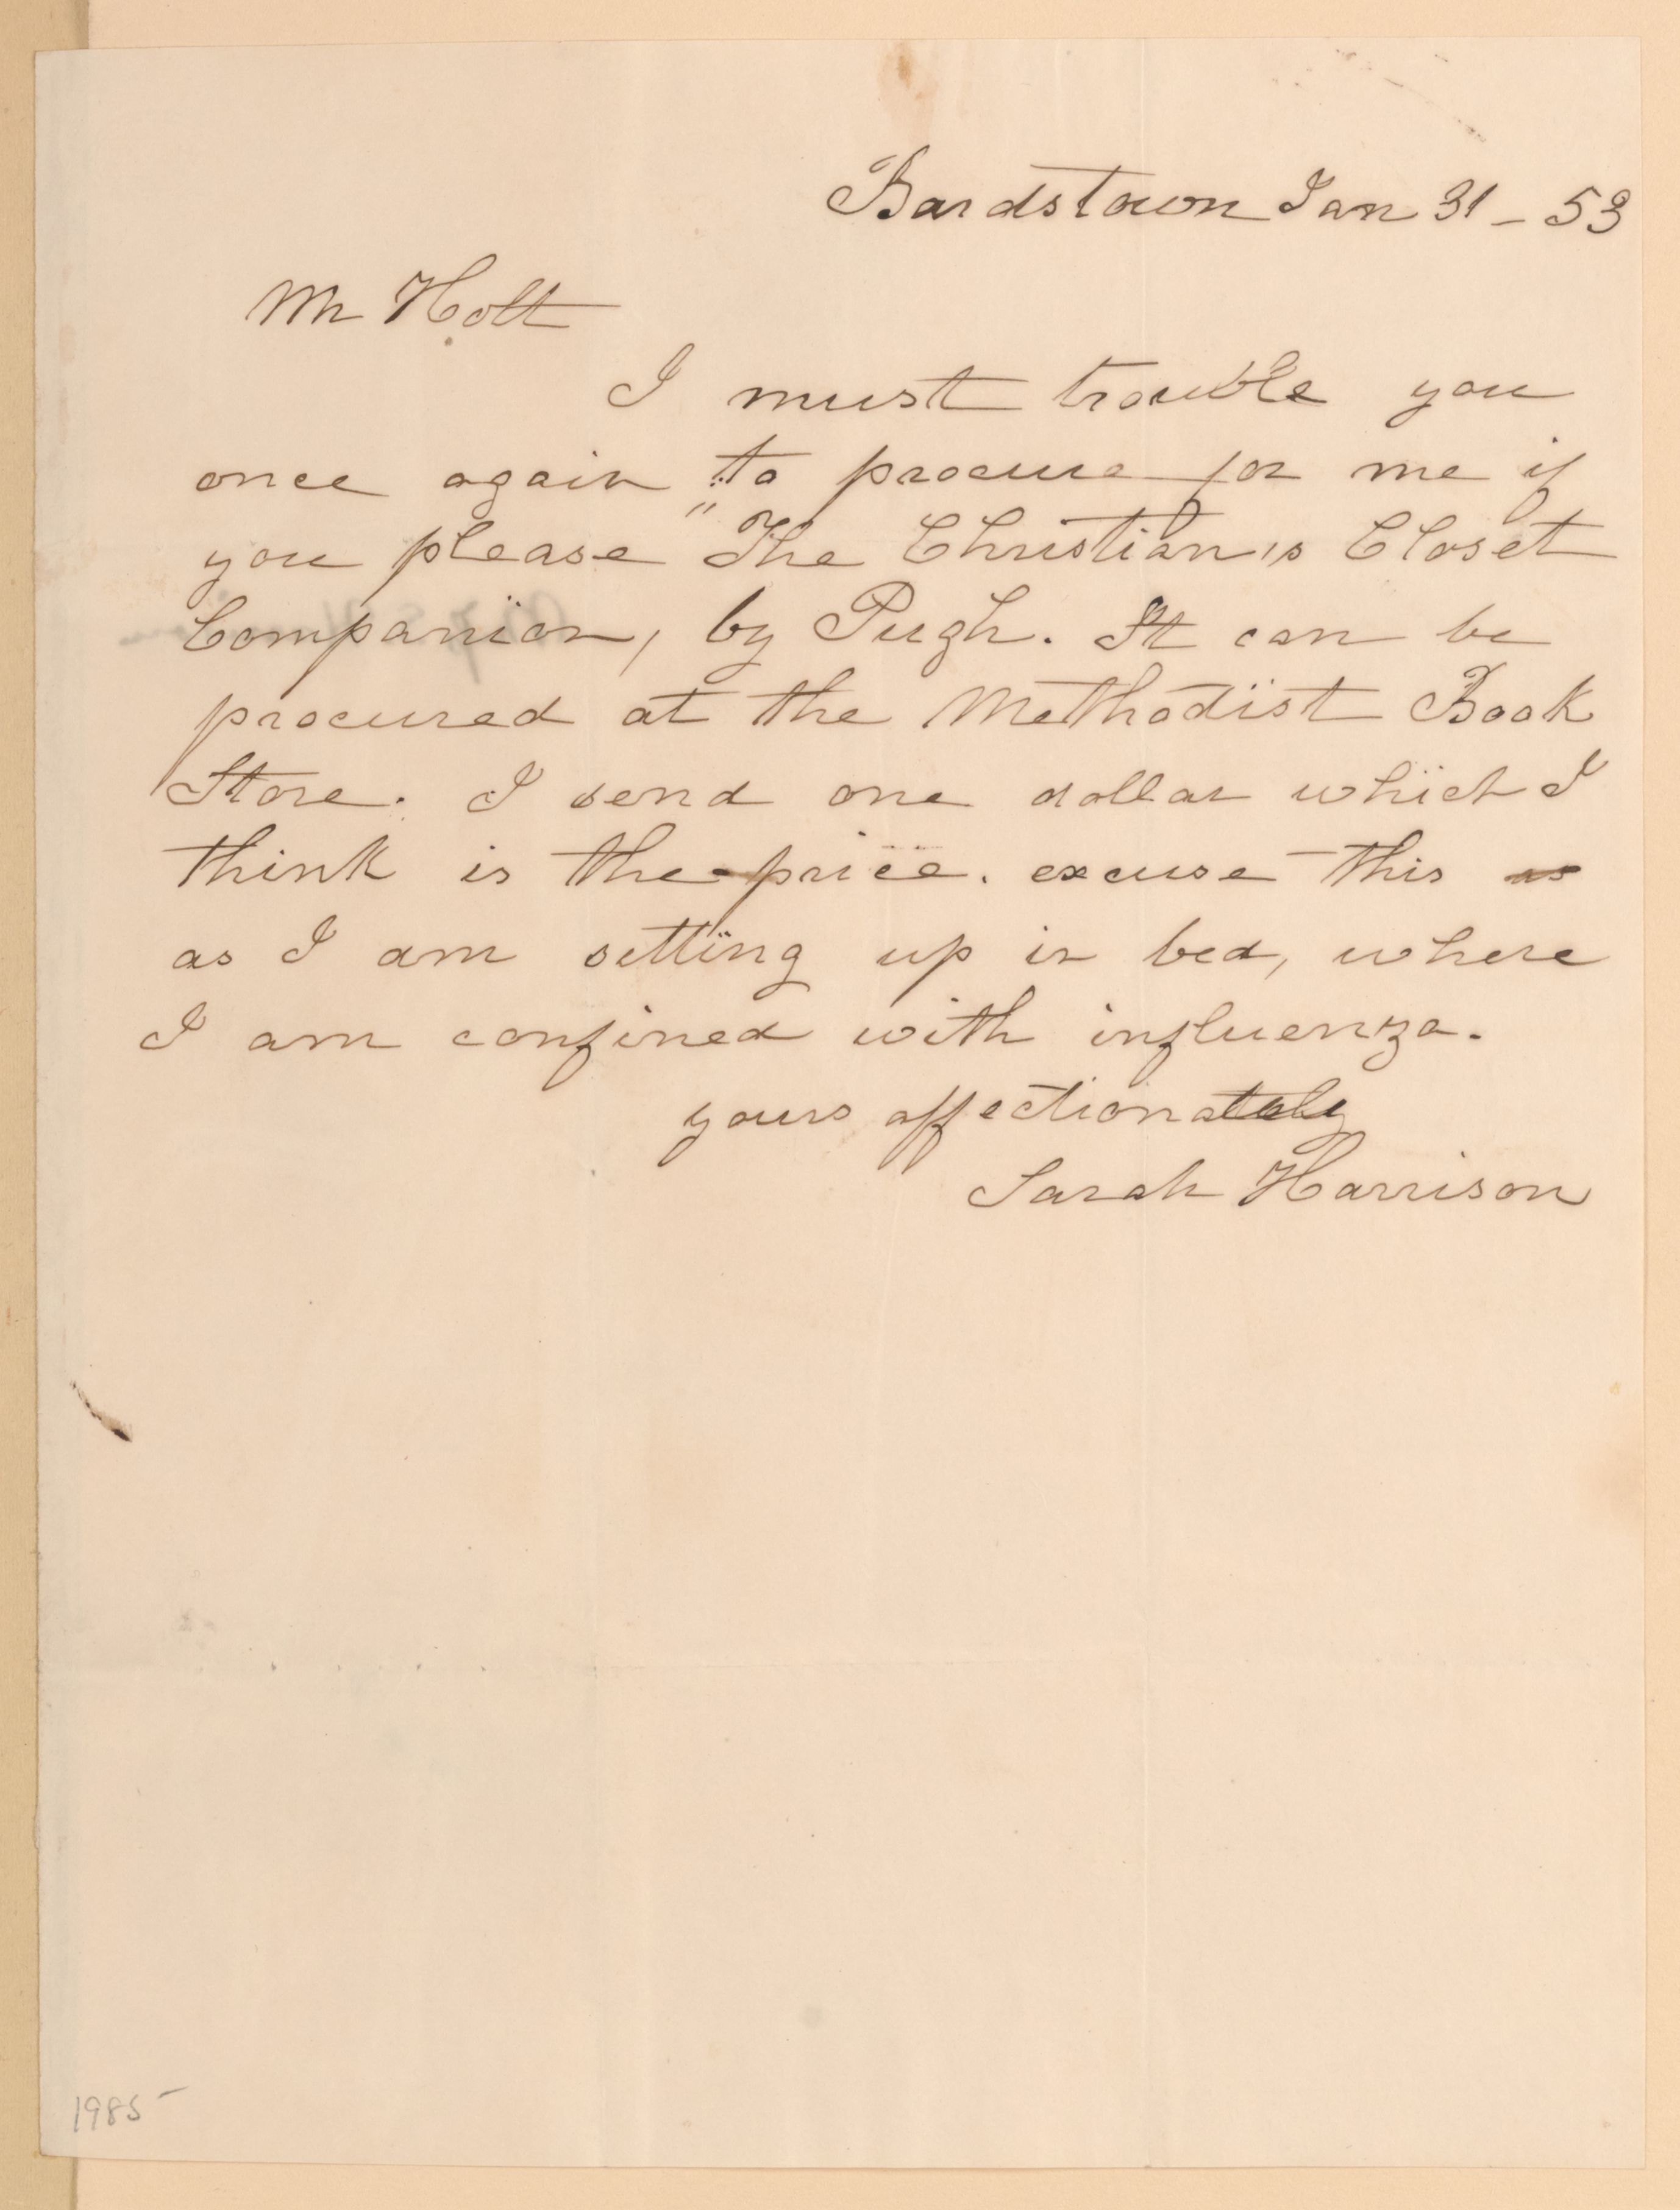 Bardstown Jan 31 - 53
Mr Holt
I must trouble you
once again to procure for me if
you please "The Christian's Closet
Companion, by Pugh. It can be
procured at the Methodist Book
Store. I send one dollar which I
think is the price. excuse this as
as I am setting up in bed, where
I am confined with influenza.
yours affectionately
Sarah Harrison
1985